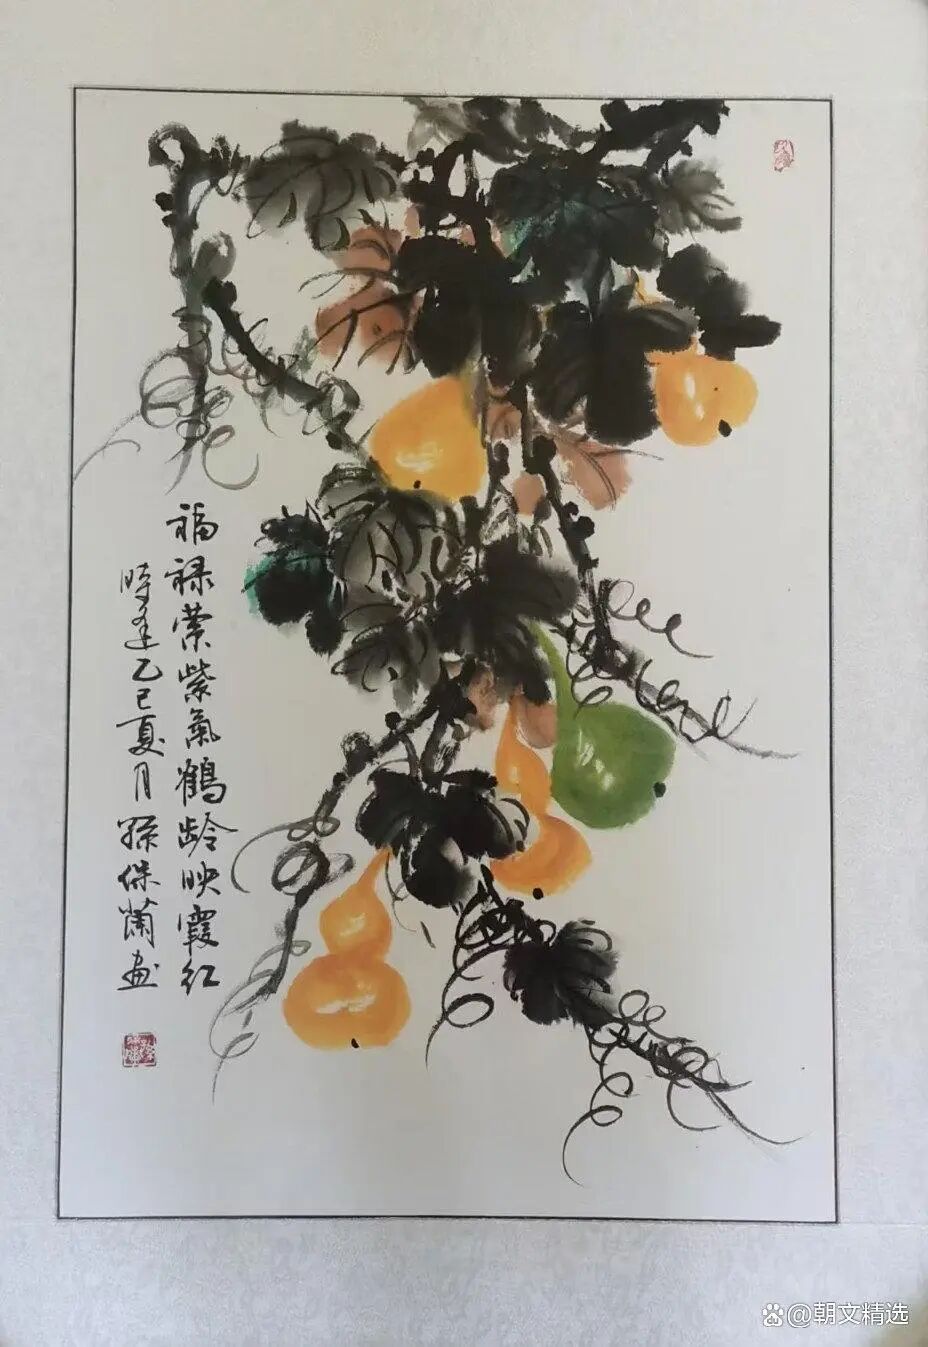 福禄荣紫气鹤龄映霞红
时年乙巳夏月孙保兰画
@朝文精选